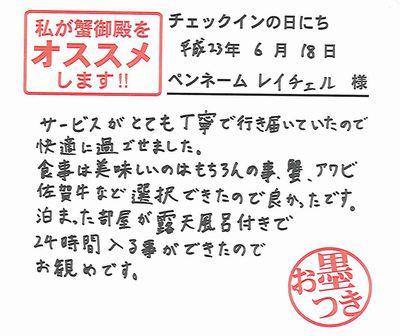 私が蟹御殿を
オススメ
します!!
チェックインの日にち
平成23年 6月 18日
ペンネーム レイチェル 様
サービスがとても丁寧で行き届いていたので
快適に過ごせました。
食事は美味しいのはもちろんの事、蟹、アワビ
佐賀牛など選択できたので良かったです。
泊まった部屋が露天風呂付きで
24時間入る事ができたので
お勧めです。
お墨つき